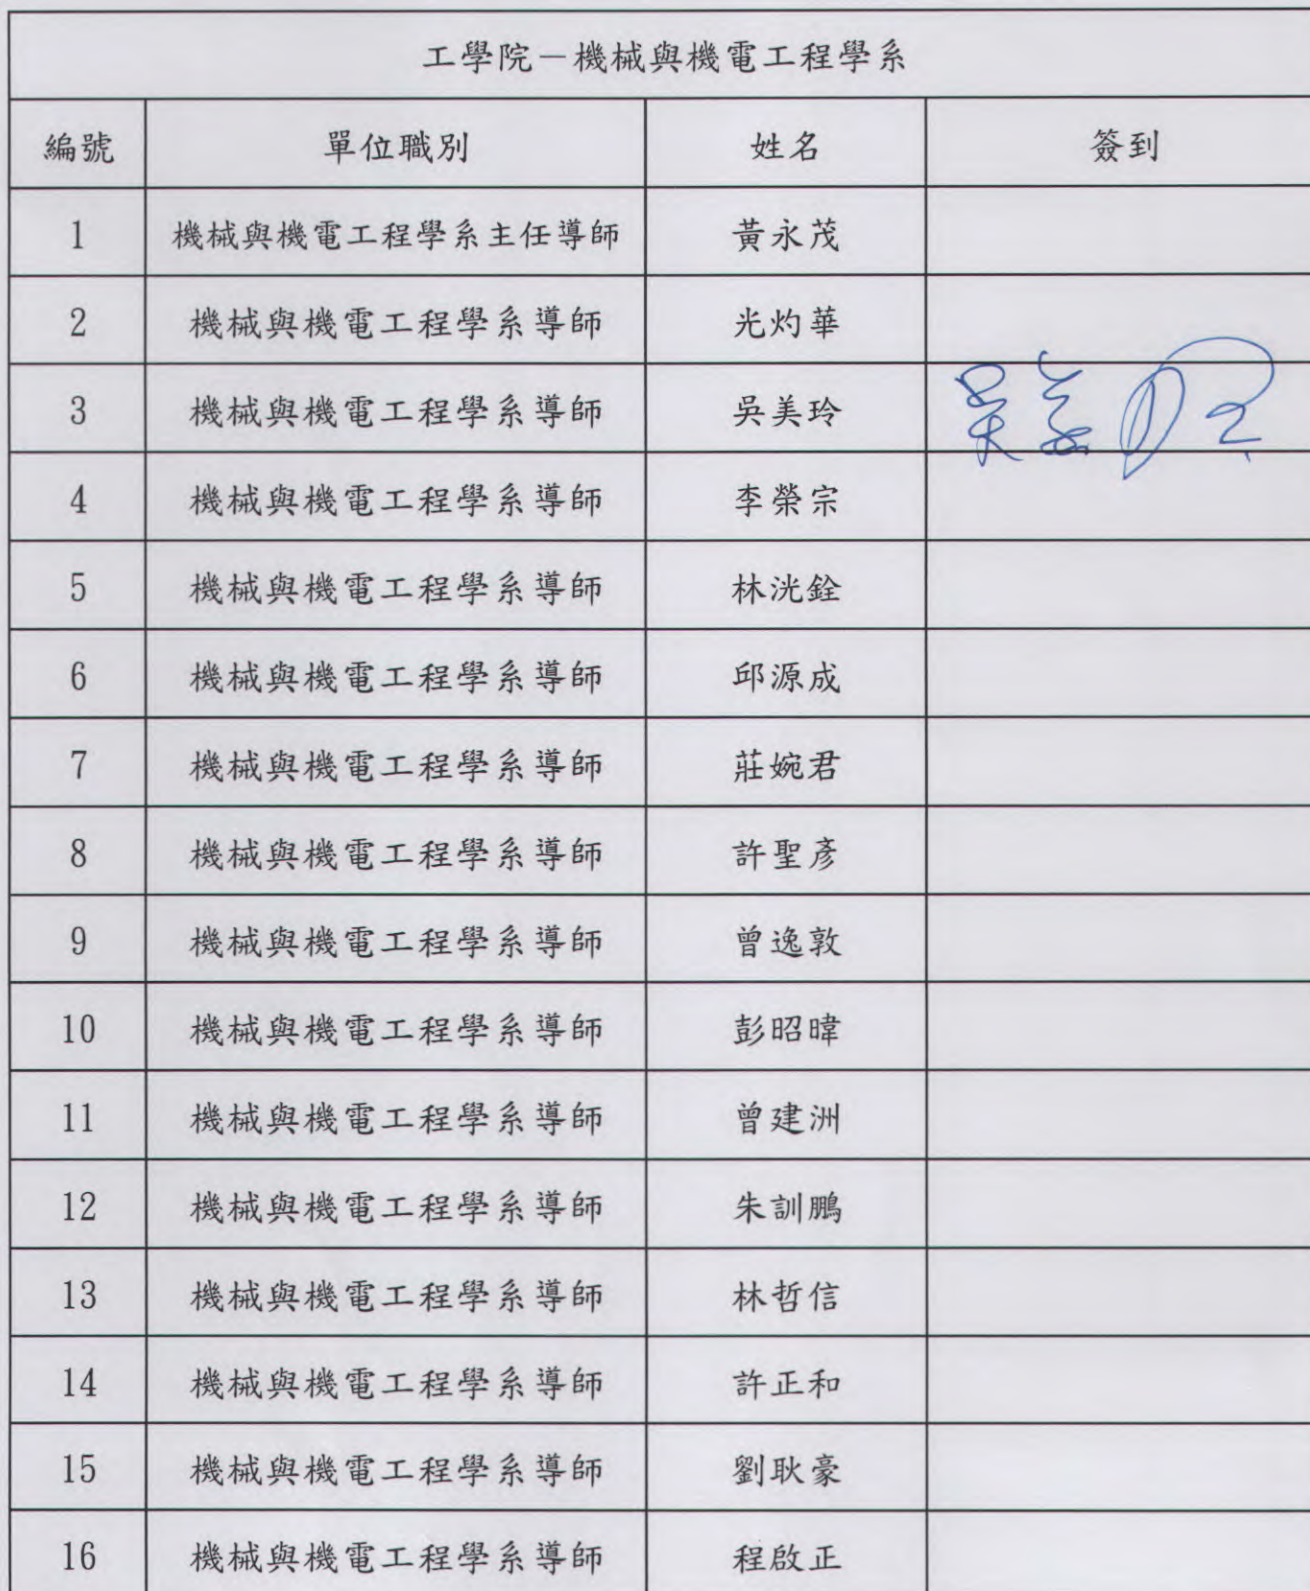 工學院－機械與機電工程學系
編號 單位職別 姓名 簽到
1 機械與機電工程學系主任導師 黃永茂
2 機械與機電工程學系導師 光灼華
3 機械與機電工程學系導師 吳美玲 吳美玲
4 機械與機電工程學系導師 李榮宗
5 機械與機電工程學系導師 林洸銓
6 機械與機電工程學系導師 邱源成
7 機械與機電工程學系導師 莊婉君
8 機械與機電工程學系導師 許聖彥
9 機械與機電工程學系導師 曾逸敦
10 機械與機電工程學系導師 彭昭暐
11 機械與機電工程學系導師 曾建洲
12 機械與機電工程學系導師 朱訓鵬
13 機械與機電工程學系導師 林哲信
14 機械與機電工程學系導師 許正和
15 機械與機電工程學系導師 劉耿豪
16 機械與機電工程學系導師 程啟正